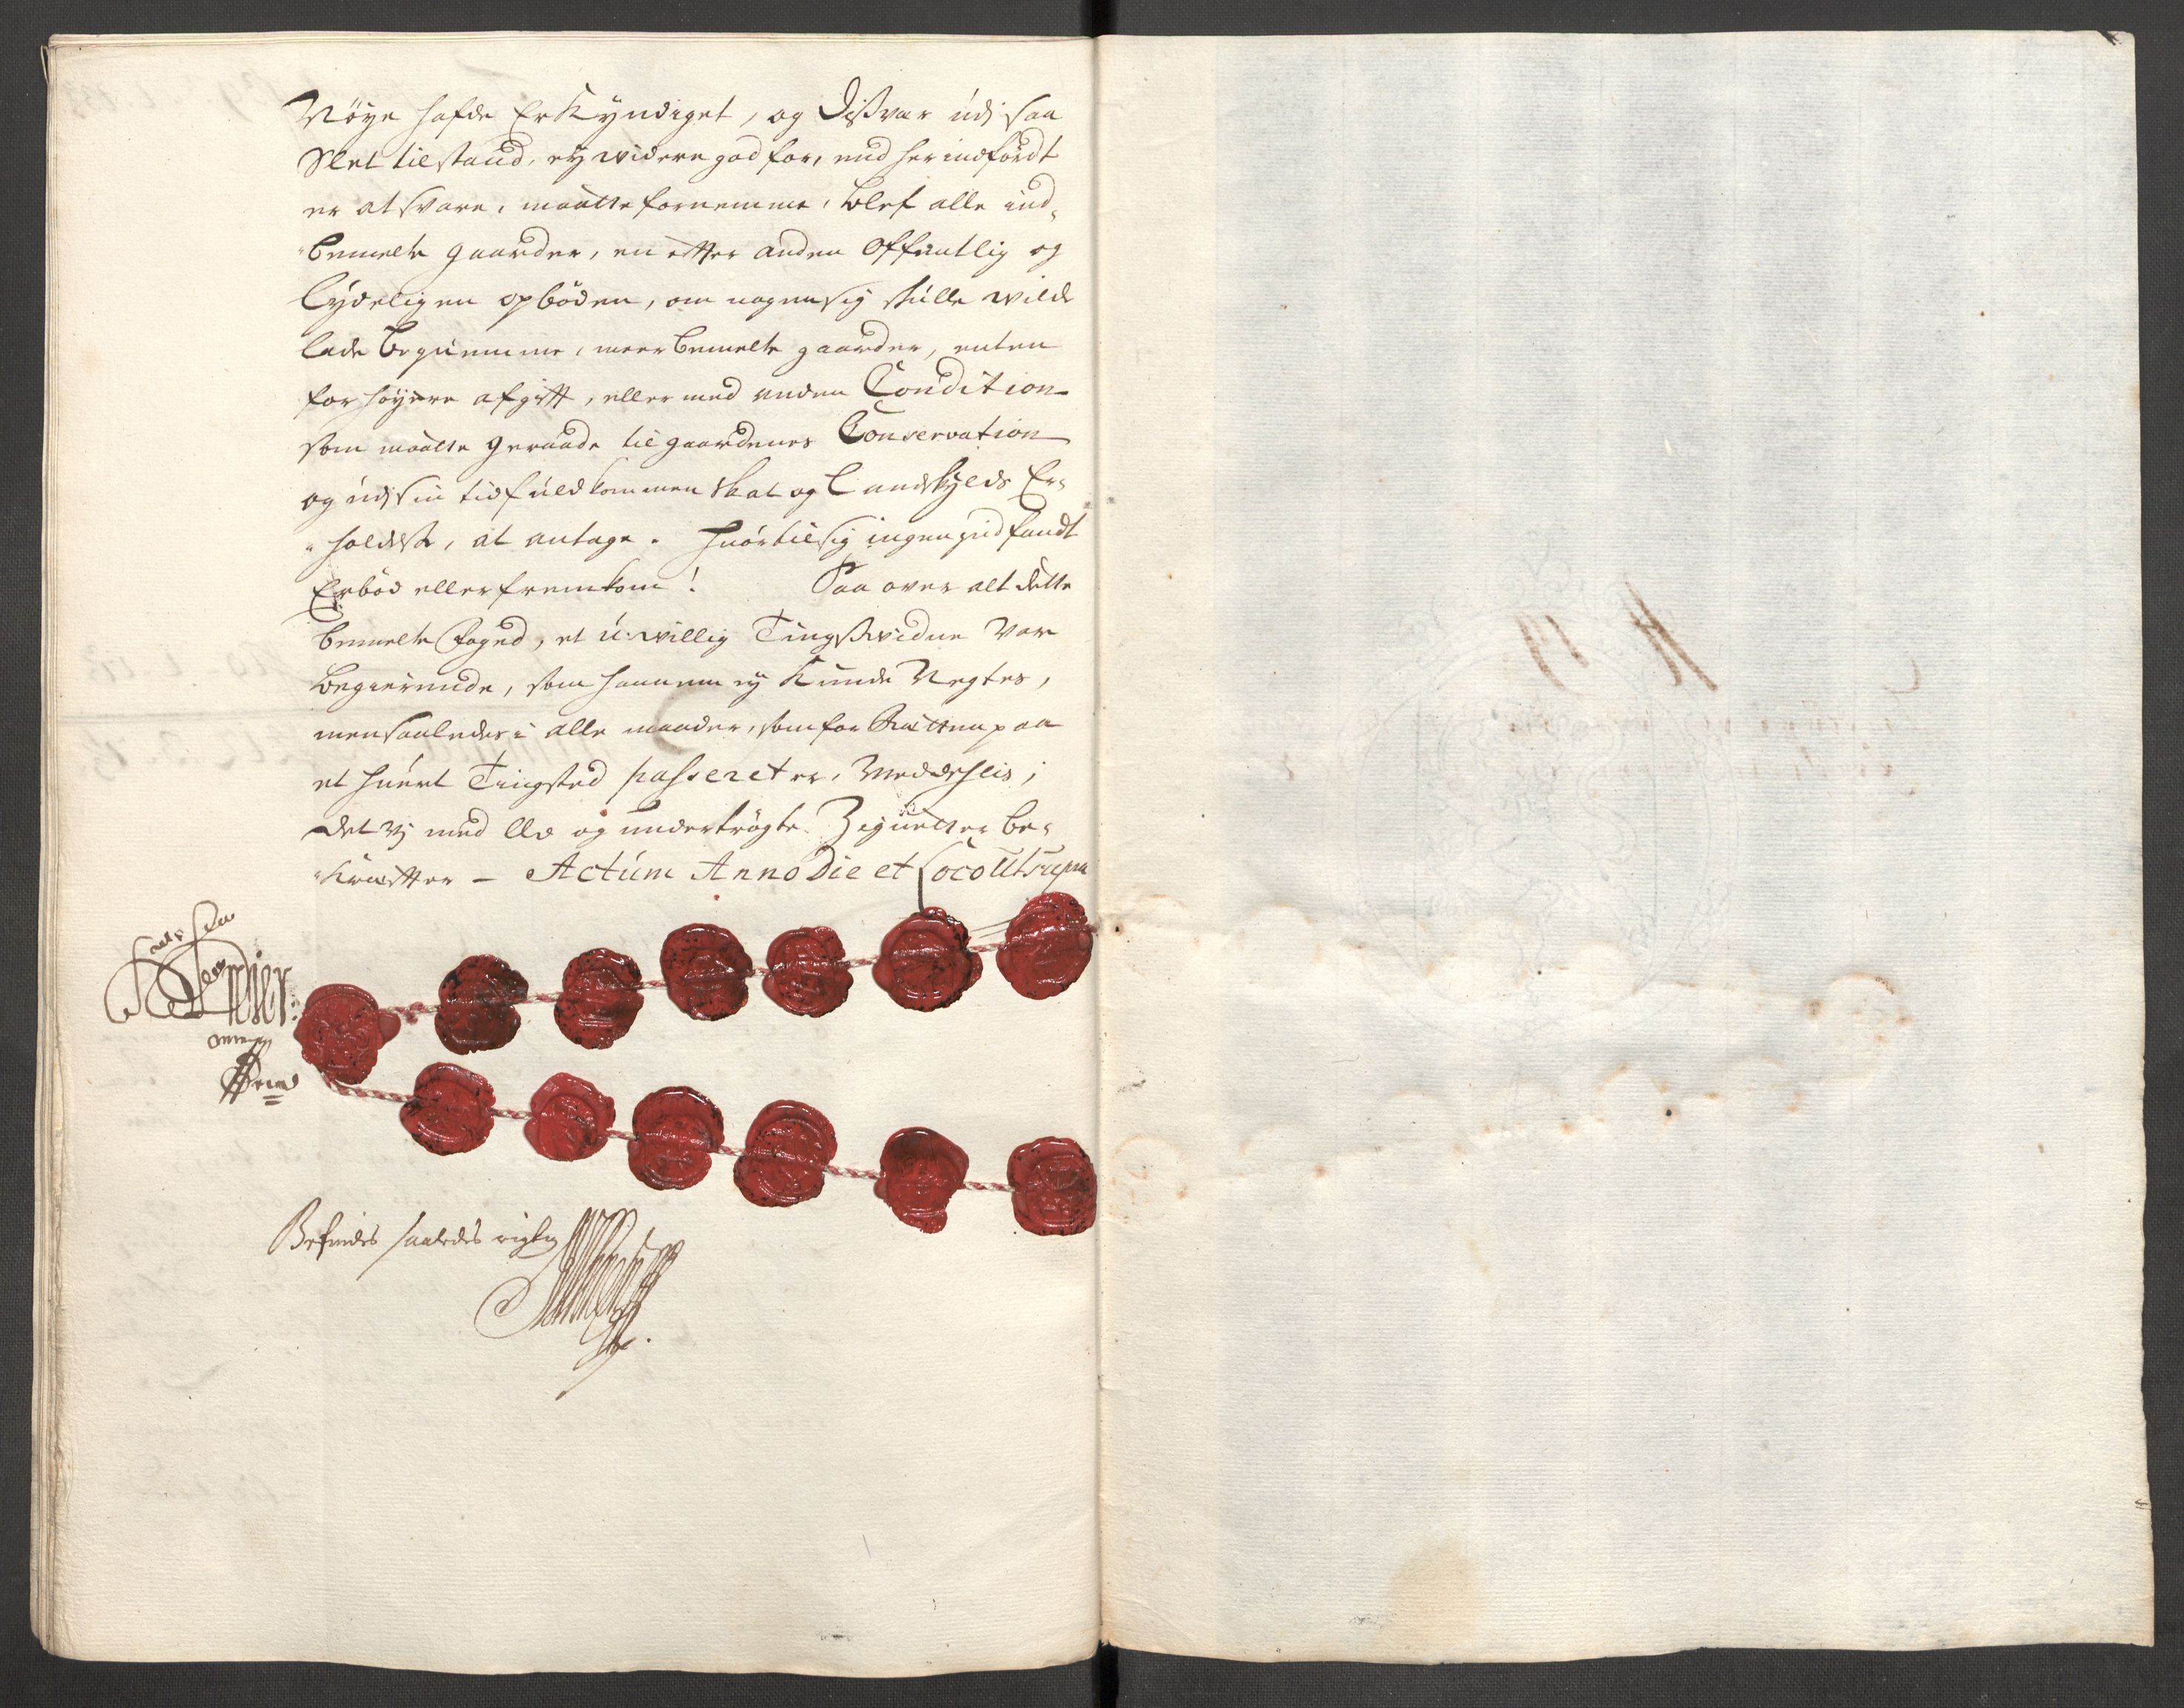 Nöye hafde Erkyndiget, og dißvar udj saa
Slet tilstand, ey widere god for, end her indfördt
er at svare, maatte fornemme, blef alle ind-
bemelte gaarder, en efter anden offentlig og
lydeligen opböden, om nogen sig skulle wilde
lade beqvemme, meerbemelte gaarder, enten
for höyere afgift, eller med anden Condition
som maatte geraade til gaardenes Conservation
og udj sin tid fuldkommen skat og Landskylds Er-
holdelse, at antage. Hvortil sig ingen gid fandt
Erböd eller fremkom! Saa over alt dette
bemelte Foged, et u-willig Tingswidne var
begierende, som hannem ey kunde Negtes,
men saaledes i alle maader, som for Rætten paa
et hvert Tingsted passeret er, Meddeelis;
det vj med Hd og undertrögte Zignetter be-
kræfter - Actum Anno Die et Loco Ut supra
Befindes saaledes rigtig